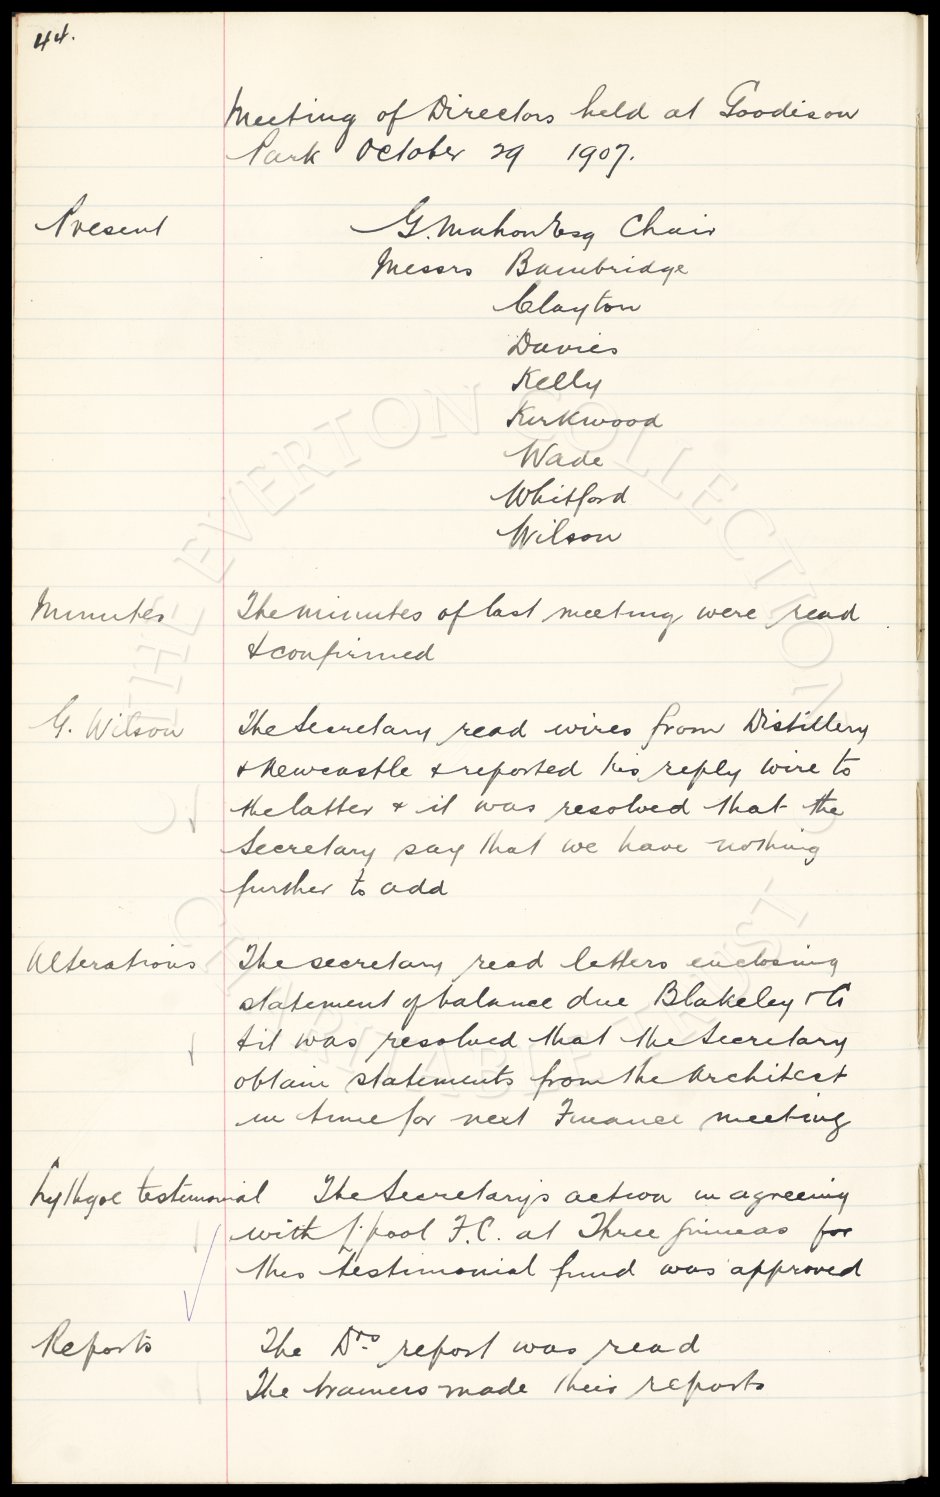 44.
Meeting of Directors held at Goodison
Park October 29 1907.
Present G. Mahon Esq Chair
Messrs Bambridge
Clayton
Davies
Kelly
Kirkwood
Wade
Whitford
Wilson
Minutes The minutes of last meeting were read
& confirmed
G. Wilson The Secretary read wires from Distillery
& Newcastle & reported his reply wire to
the latter & it was resolved that the
Secretary say that we have nothing
further to add
Alterations The secretary read letters enclosing
statement of balance due Blakeley & Co
& it was resolved that the Secretary
obtain statements from the Architect
in time for next Finance meeting
Lythgoe testimonial The Secretary's action in agreeing
with L'pool F.C. at Three guineas for
this testimonial fund was approved
Reports The Drs report was read
The trainers made their reports
THE EVERTON COLLECTION
CHARITABLE TRUST